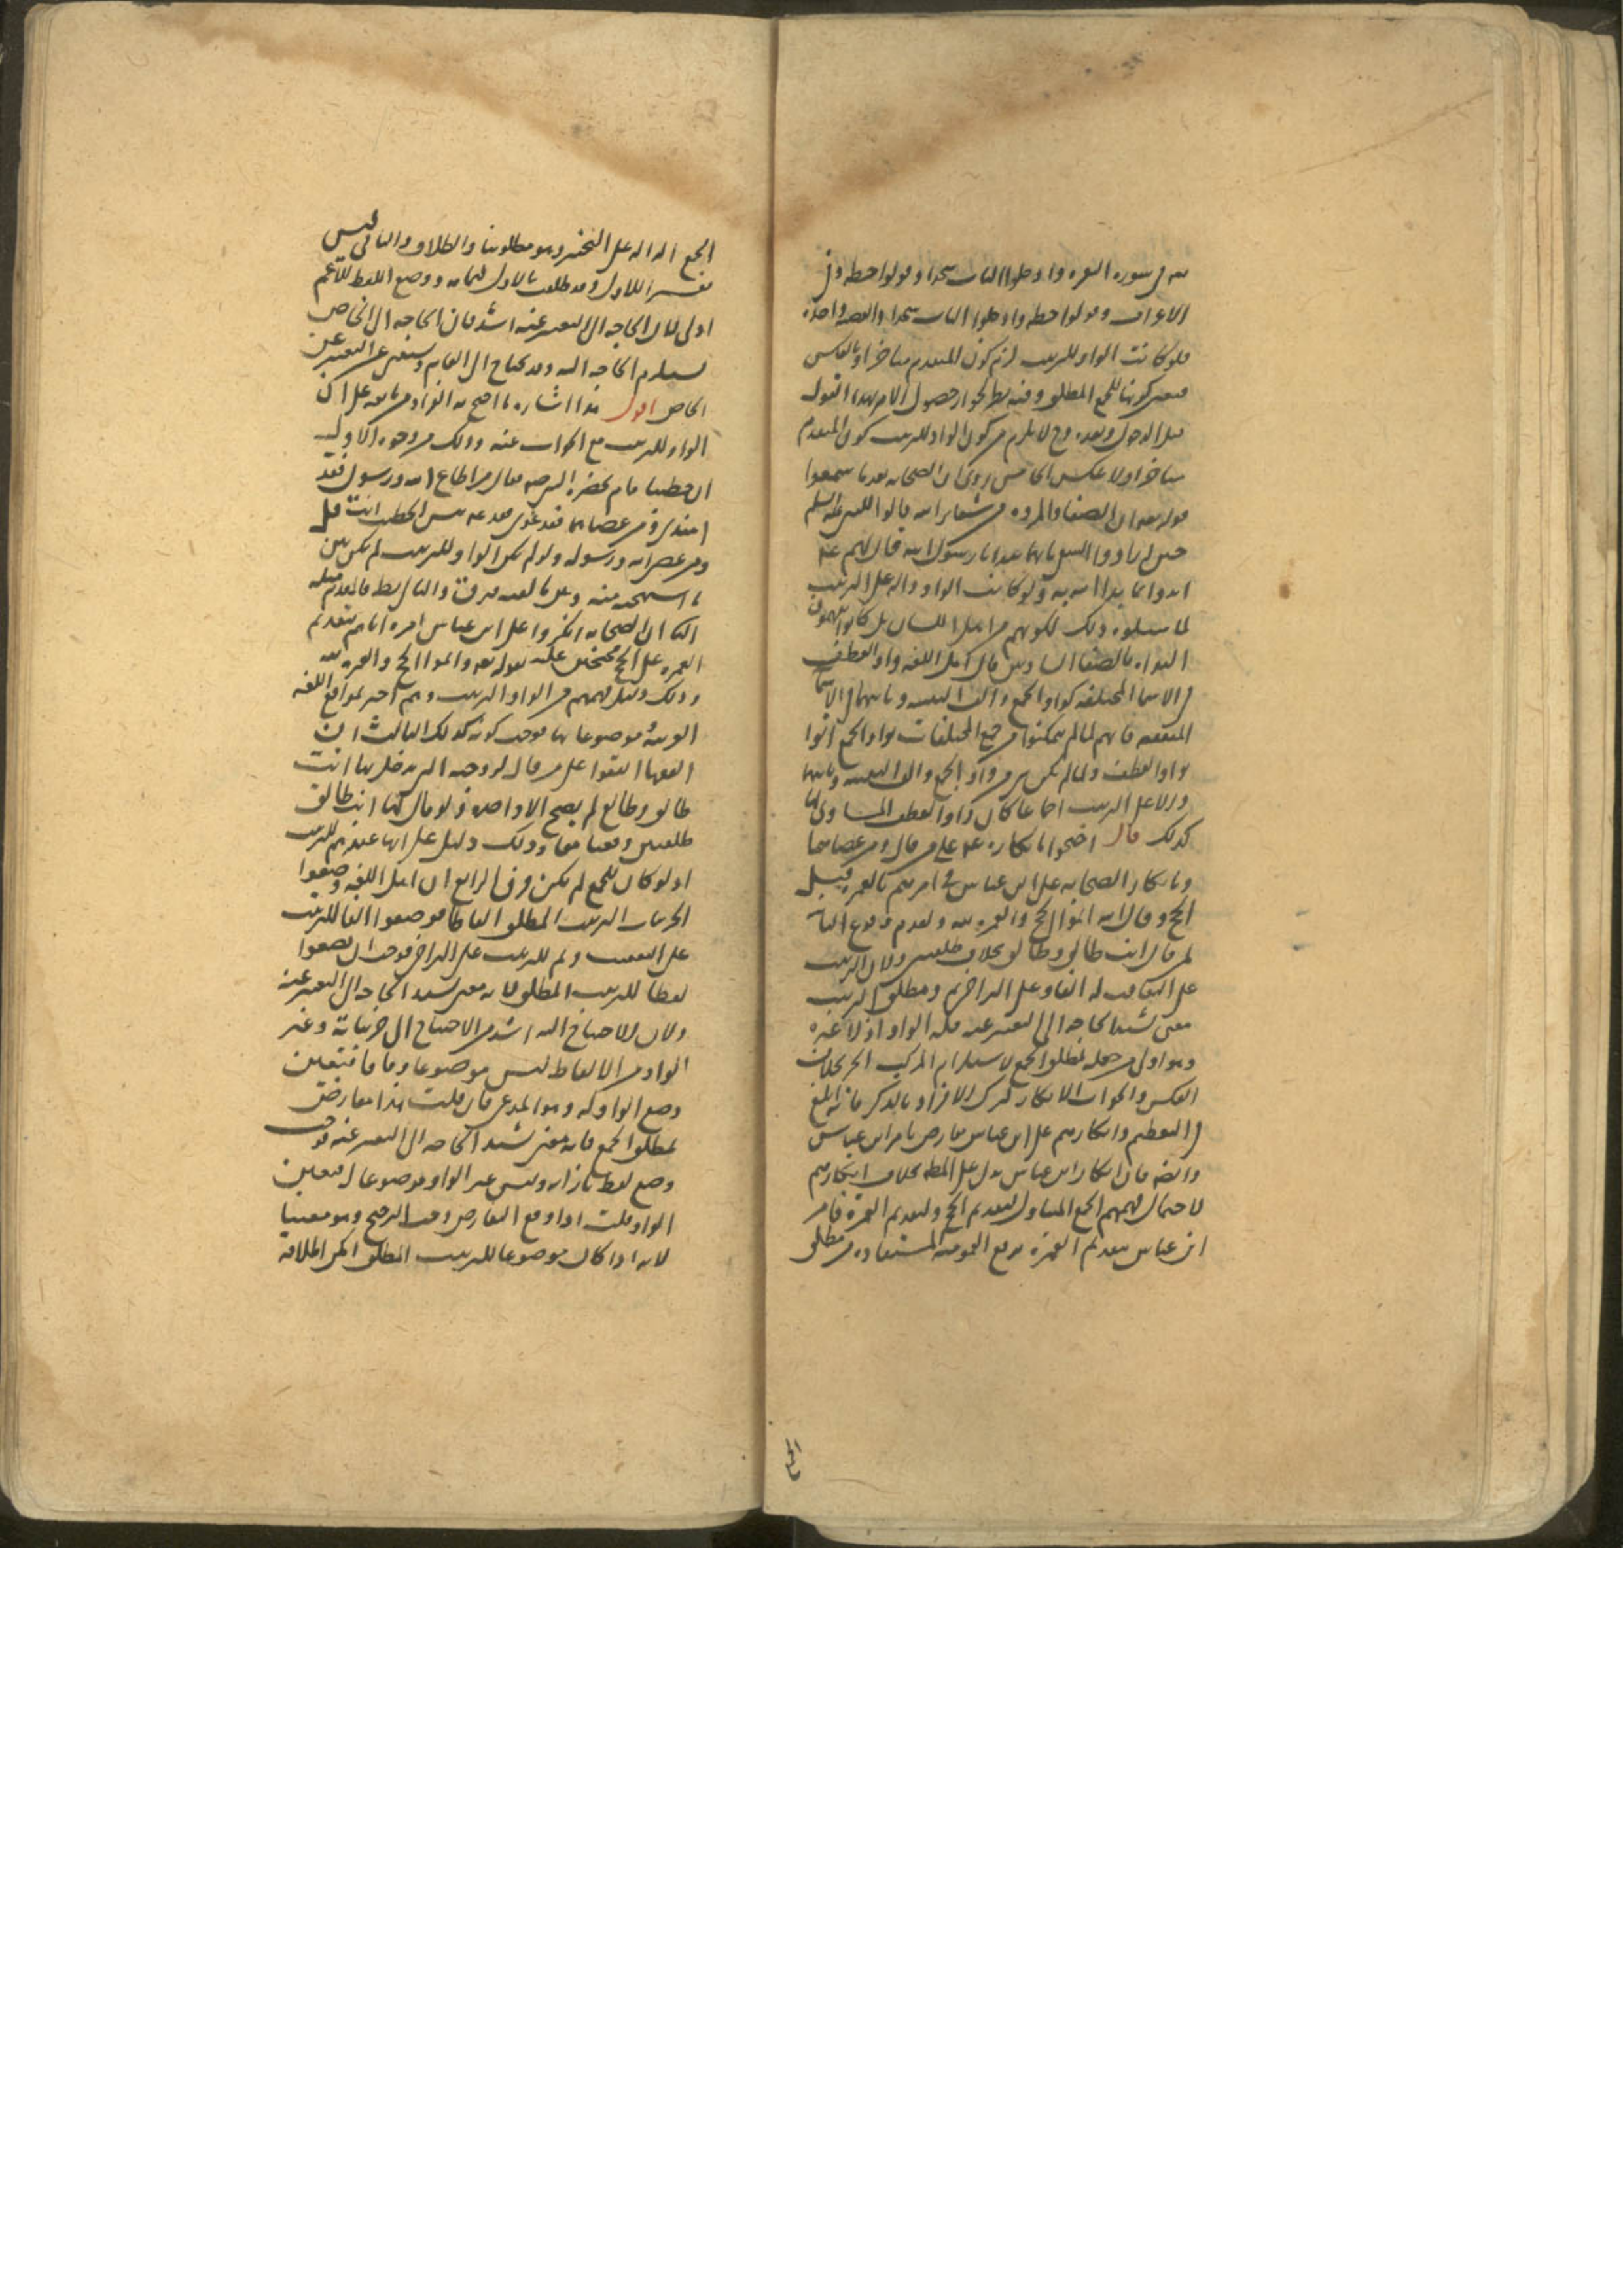 سه في سورة البقرة وادخلوا الباب سجدا وقولوا حطة وفي
الاعراف وقولوا حطة وادخلوا الباب سجدا والقصة واحدة
فلو كانت الواو للترتيب لزم كون المتقدم متاخرا وبالعكس
فتعين كونها للجمع المطلق وفيه نظر لجواز حصول الامر بهذا القول
قبل الدخول وبعده وح لا يلزم من كون الواو للترتيب كون المتقدم
متاخرا ولا عكس الخامس روي ان الصحابة بعد ما سمعوا
قوله تعالى ان الصفا والمروة من شعائر الله قالوا للنبي عليه السلم
حين ارادوا السعي بايهما نبدا يا رسول الله قال لهم عم
ابدوا بما بدا الله به ولو كانت الواو دالة على الترتيب
لما سالوه ذلك لكونهم من اهل اللسان بل كانوا يفهمون
البداة بالصفا السادس قال اهل اللغة واو العطف
في الاسما المختلفة كواو الجمع والف التثنية وياهما في الاسما
المتفقة فانهم لما لم يتمكنوا من جمع المختلفات بواو الجمع اتوا
بواو العطف ولما لم يكن من واو الجمع والف التثنية وياهما
دلالة على الترتيب اجماعا كان واو العطف المساوي لها
كذلك قال احتجوا بانكاره عم على من قال ومن عصاهما
وبانكار الصحابة على ابن عباس في امرهم بالعمرة قبيل
الحج وقال الله اتموا الحج والعمرة لله وبعدم وقوع الثانية
لمن قال انت طالق وطالق بخلاف طلقتين ولان الترتيب
على التعاقب له الفاء وعلى التراخي ثم ومطلق الترتيب
معنى تشتد الحاجة الى التعبير عنه فله الواو اذ لا غيره
وهو اولى من جعله لمطلق الجمع لاستلزام المركب الجزء بخلاف
العكس والجواب الانكار لترك الافراد بالذكر فانه ابلغ
في التعظيم وانكارهم على ابن عباس معارض بامر ابن عباس
وايضا فان انكار ابن عباس يدل على المطلوب بخلاف انكارهم
لاحتمال فهمهم الجمع المتناول لتقديم الحج ولتقديم العمرة فامر
ابن عباس بتقديم العمرة يرفع العمومية المستفادة من مطلق
الجمع
الجمع الدالة على التخيير وهو مطلوبنا والطلاق والثاني ليس
تفسيرا للاول وقد طلقت بالاول فبانت ووضع اللفظ للاعم
اولى لان الحاجة الى التعبير عنه اشد فان الحاجة الى الخاص
تستلزم الحاجة اليه وقد يحتاج الى العام ويستغنى عن التعبير عن
الخاص اقول هذا اشارة الى ما احتج به الفراء ومن تابعه على ان
الواو للترتيب مع الجواب عنه وذلك من وجوه الاول
ان خطيبا قام بحضرة النبي صه فقال من اطاع الله ورسوله فقد
اهتدى ومن عصاهما فقد غوى فقال عم بئس الخطيب انت قل
ومن عصى الله ورسوله ولو لم تكن الواو للترتيب لم يكن بين
ما استهجنه منه وبين ما لقنه فرق والتالي بطل فالمقدم مثله
الثاني ان الصحابة انكروا على ابن عباس امره اياهم بتقديم
العمرة على الحج محتجين عليه بقوله تعالى واتموا الحج والعمرة لله
وذلك دليل فهمهم من الواو الترتيب وهم اخبر بمواقع اللغة
العربية وموضوعاتها فوجب كونه كذلك الثالث ان
الفقهاء اتفقوا على من قال لزوجته التي لم يدخل بها انت
طالق وطالق لم يصح الا واحدة ولو قال لها انت طالق
طلقتين وقعتا معا وذلك دليل على انها عندهم للترتيب
اذ لو كان للجمع لم يكن فرق الرابع ان اهل اللغة وضعوا
لجزئيات الترتيب المطلق الفاظا فوضعوا الفا للترتيب
على التعقيب وثم للترتيب على التراخي فوجب ان يضعوا
لفظا للترتيب المطلق لانه معنى تشتد الحاجة الى التعبير عنه
ولان الاحتياج اليه اشد من الاحتياج الى جزئياته وغير
الواو من الالفاظ ليس موضوعا وفاقا فتعين
وضع الواو له وهو المدعى فان قلت هذا معارض
بمطلق الجمع فانه معنى تشتد الحاجة الى التعبير عنه فوجب
وضع لفظ بازائه وليس غير الواو موضوعا له فتعين
الواو قلت اذا وقع التعارض وجب الترجيح وهو معنا
لانه اذا كان موضوعا للترتيب المطلق امكن اطلاقه